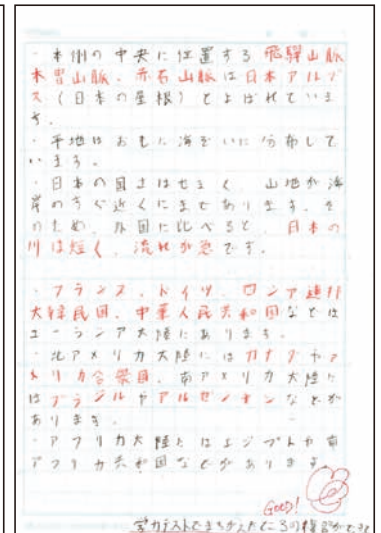 ・本州の中央に位置する飛騨山脈
木曽山脈、赤石山脈は日本アルプ
ス(日本の屋根)とよばれていま
す。
・平地はおもに海ぞいに分布して
います。
・日本の国土はせまく、山地が海
岸のすぐ近くにまであります。そ
のため、外国に比べると、日本の
川は短く、流れが急です。
・フランス、ドイツ、ロシア連邦
大韓民国、中華人民共和国などは
ユーラシア大陸にあります。
・北アメリカ大陸にはカナダやア
メリカ合衆国、南アメリカ大陸に
はブラジルやアルゼンチンなどが
あります。
・アフリカ大陸にはエジプトや南
アフリカ共和国などがあります
Good!
学力テストでまちがえたところの復習ができ